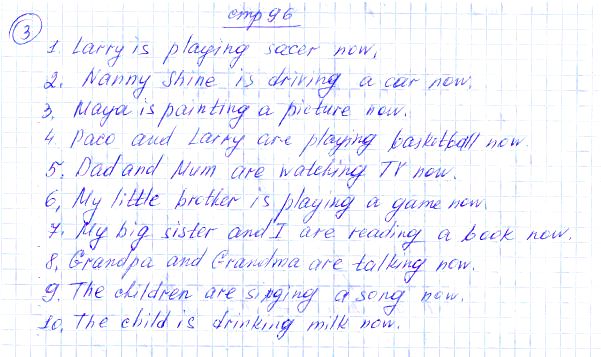 стр 96
3
1. Larry is playing soccer now.
2. Nanny Shine is driving a car now.
3. Maya is painting a picture now.
4. Paco and Larry are playing basketball now.
5. Dad and Mum are watching TV now.
6. My little brother is playing a game now.
7. My big sister and I are reading a book now.
8. Grandpa and Grandma are talking now.
9. The children are singing a song now.
10. The child is drinking milk now.